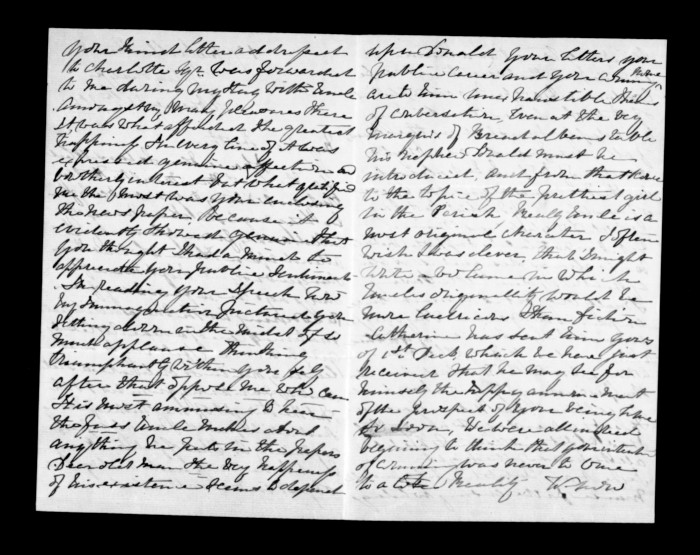 your kind letter addressed
to Charlotte Sqr. was forwarded
to me during my stay with Uncle
Amongst my many pleasures there
it was what afforded the greatest
happiness The very line of it was
genuine affection and
brotherly interest but what gratified
me the most was your enclosing
the news paper, because it so
evidently showed genuine that
you thought I had a mind to
appreciate your public sentiments
In reading your Speech how
my imagination pictured you
sitting down in the midst of so
much applause thinking
triumphantly within yourself
after that oppose me who can
It is most amusing to hear
the fuss Uncle makes about
anything he puts in the papers
Dear old man the very happiness
of his existence seems to depend
upon Donald your letters your
public career and your coming home
are to him inexhaustible themes
of conversation, Even at the very
Marquis of Breadalbane's table
his nephew Donald must be
introduced, and from that there
to the topic of the prettiest girl
in the Parish. Really Uncle is a
most original character I often
wish I was clever, that I might
write a volume in which
Uncle's originality would be
more ludicrous than fiction
Catherine has sent him yours
of 1st Feb, which we have just
received that he may see for
himself the happy announcement
of the prospect of your being home
so soon, We were all indeed
beginning to think that your intention
of coming was never to come
to a reality